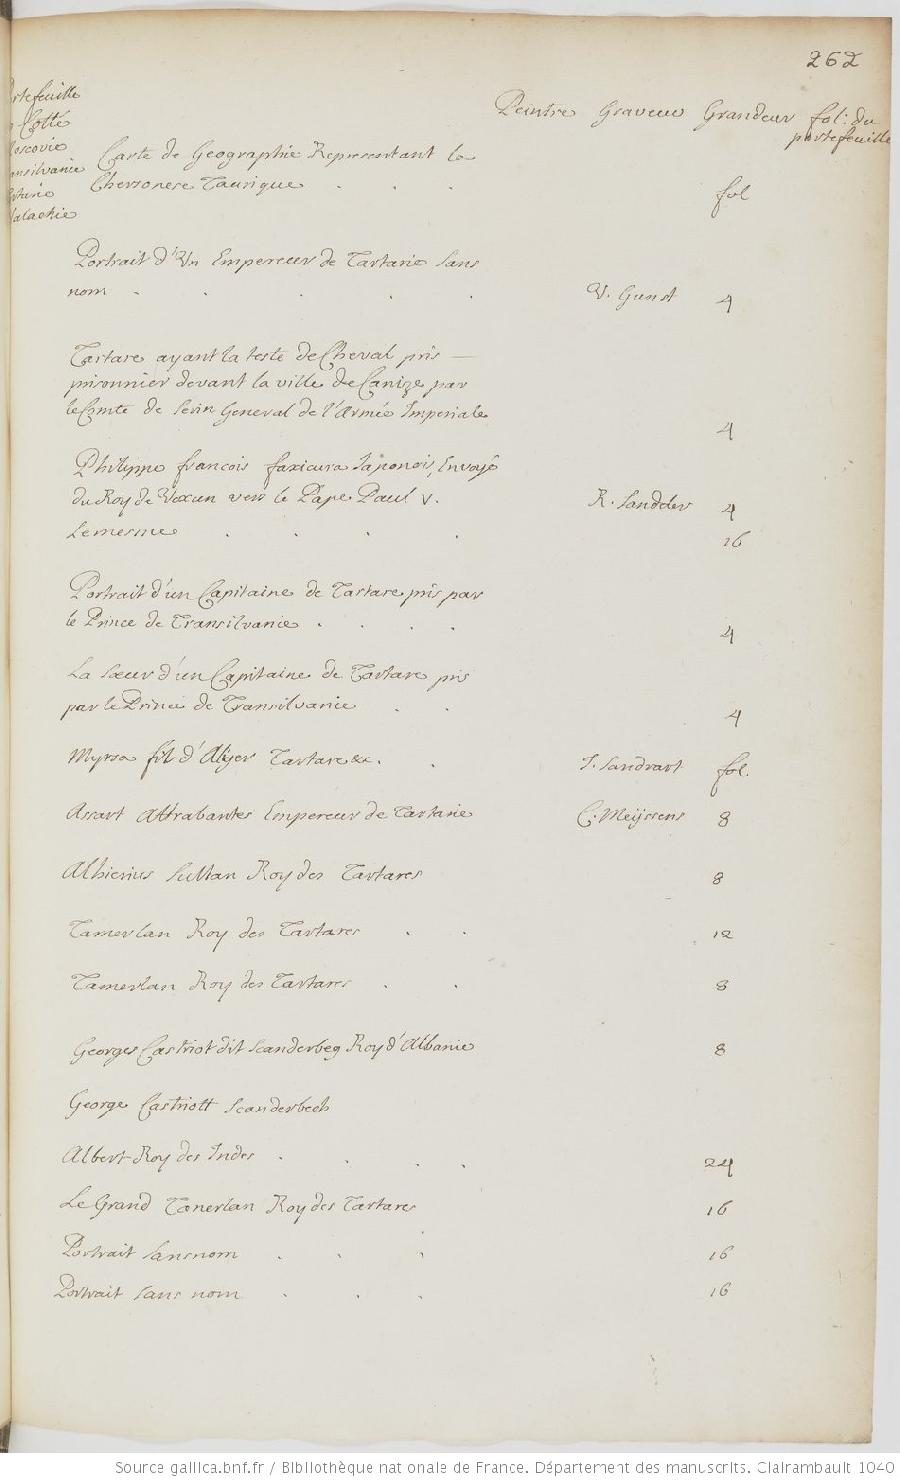 262
Peintre Graveur Grandeur fol: du
portefeuille
rtefeuille
Cotté
oscovie
ansilvanie
rtarie
alachie
Carte de Geographie Representant la
Chersonese Taurique . . . fol
Portrait d'Un Empereur de Tartarie sans
nom . . . . . V. Gunst 4
Tartare ayant la teste de Cheval pris —
prisonnier devant la ville de Canize par
le Comte de Serin General de l'Armée Imperiale
4
Philippe francois faxicura Japonois, Envoyé
du Roy de Voxun vers le Pape Paul V. R. Sandder 4
Lemesme . . . . 16
Portrait d'un Capitaine de Tartare pris par
le Prince de Transilvanie . . . . 4
La soeur d'un Capitaine de Tartare pris
par le Prince de Transilvanie . . 4
Myrsa fil d'Aliger Tartare &c. . J. Sandrart fol.
Assart Attrabantes Empereur de Tartarie C. Meijssens 8
Alhierius Sultan Roy des Tartares 8
Tamerlan Roy des Tartares . . 12
Tamerlan Roy des Tartares . . 8
Georges Castriot dit Scanderbeg Roy d'Albanie 8
George Castriott Scanderbech
Albert Roy des Indes . . . . 24
Le Grand Tanerlan Roy des Tartares 16
Portrait sans nom . . . 16
Portrait sans nom . . . 16
Source gallica.bnf.fr / Bibliothèque nationale de France. Département des manuscrits. Clairambault 1040